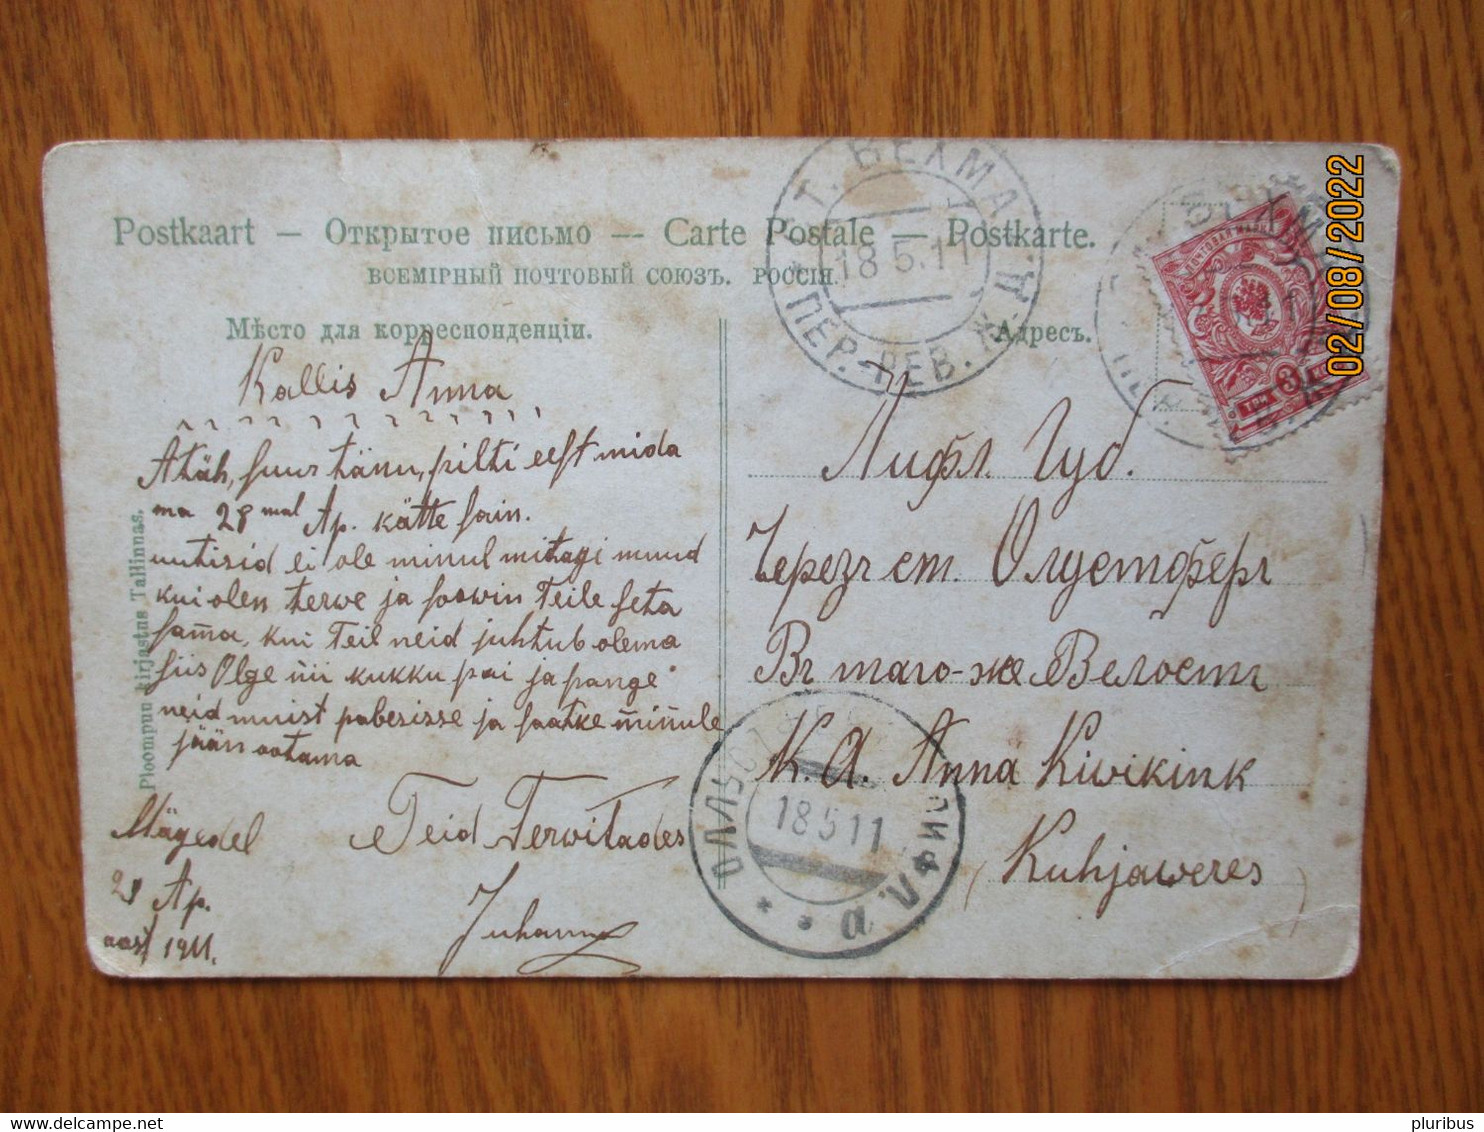 Postkaart — Открытое письмо — Carte Postale — Postkarte.
ВСЕМІРНЫЙ ПОЧТОВЫЙ СОЮЗЪ. РОССІЯ.
Мѣсто для корреспонденціи.
Адресъ.
СТ. ВЕЛМА
18 5.11
ПЕР.-РЕВ. Ж. Д.
ПОЧТОВАЯ МАРКА
ТРИ 3 КОП
02/08/2022
Kallis Anna
Aitäh, suur tänu, pilti eest mida
ma 28 mal Ap. kätte sain.
uutisid ei ole minul mitagi muud
kui olen terwe ja soowin Teile seta
sama, kui Teil neid juhtub olema
siis Olge nii kukku pai ja pange
neid muist paberisse ja saatke minule
jään ootama
Teid Terwitades
Juhan
Mägedel
28 Ap.
aast 1911.
Ploompuu kirjastus Tallinnas.
Лифл. Губ.
Черезъ ст. Олустферъ
Въ таго-же Велость
К. А. Anna Kiwikink
(Kuhjaweres)
18 5 11
ЛИФЛ.
а
pluribus
delcampe.net